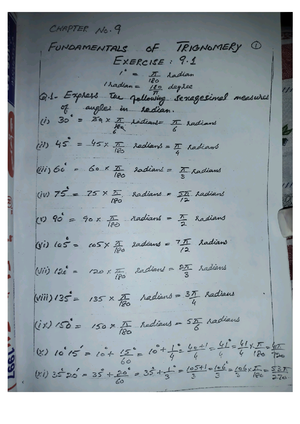 CHAPTER NO. 9
FUNDAMENTALS OF TRIGNOMERY ①
EXERCISE : 9.1
1° = π/180 radian
1 radian = 180/π degree
Q.1- Express the following sexagesimal measures
of angles in radian.
(i) 30° = 30 × π/180 radians = π/6 radians
(ii) 45° = 45 × π/180 radians = π/4 radians
(iii) 60° = 60 × π/180 radians = π/3 radians
(iv) 75° = 75 × π/180 radians = 5π/12 radians
(v) 90° = 90 × π/180 radians = π/2 radians
(vi) 105° = 105 × π/180 radians = 7π/12 radians
(vii) 120° = 120 × π/180 radians = 2π/3 radians
(viii) 135° = 135 × π/180 radians = 3π/4 radians
(ix) 150° = 150 × π/180 radians = 5π/6 radians
(x) 10°15' = 10° + 15°/60 = 10° + 1°/4 = 40+1/4 = 41°/4 = 41/4 × π/180 = 41π/720
(xi) 35°20' = 35° + 20°/60 = 35° + 1°/3 = 105+1/3 = 106°/3 = 106/3 × π/180 = 53π/270